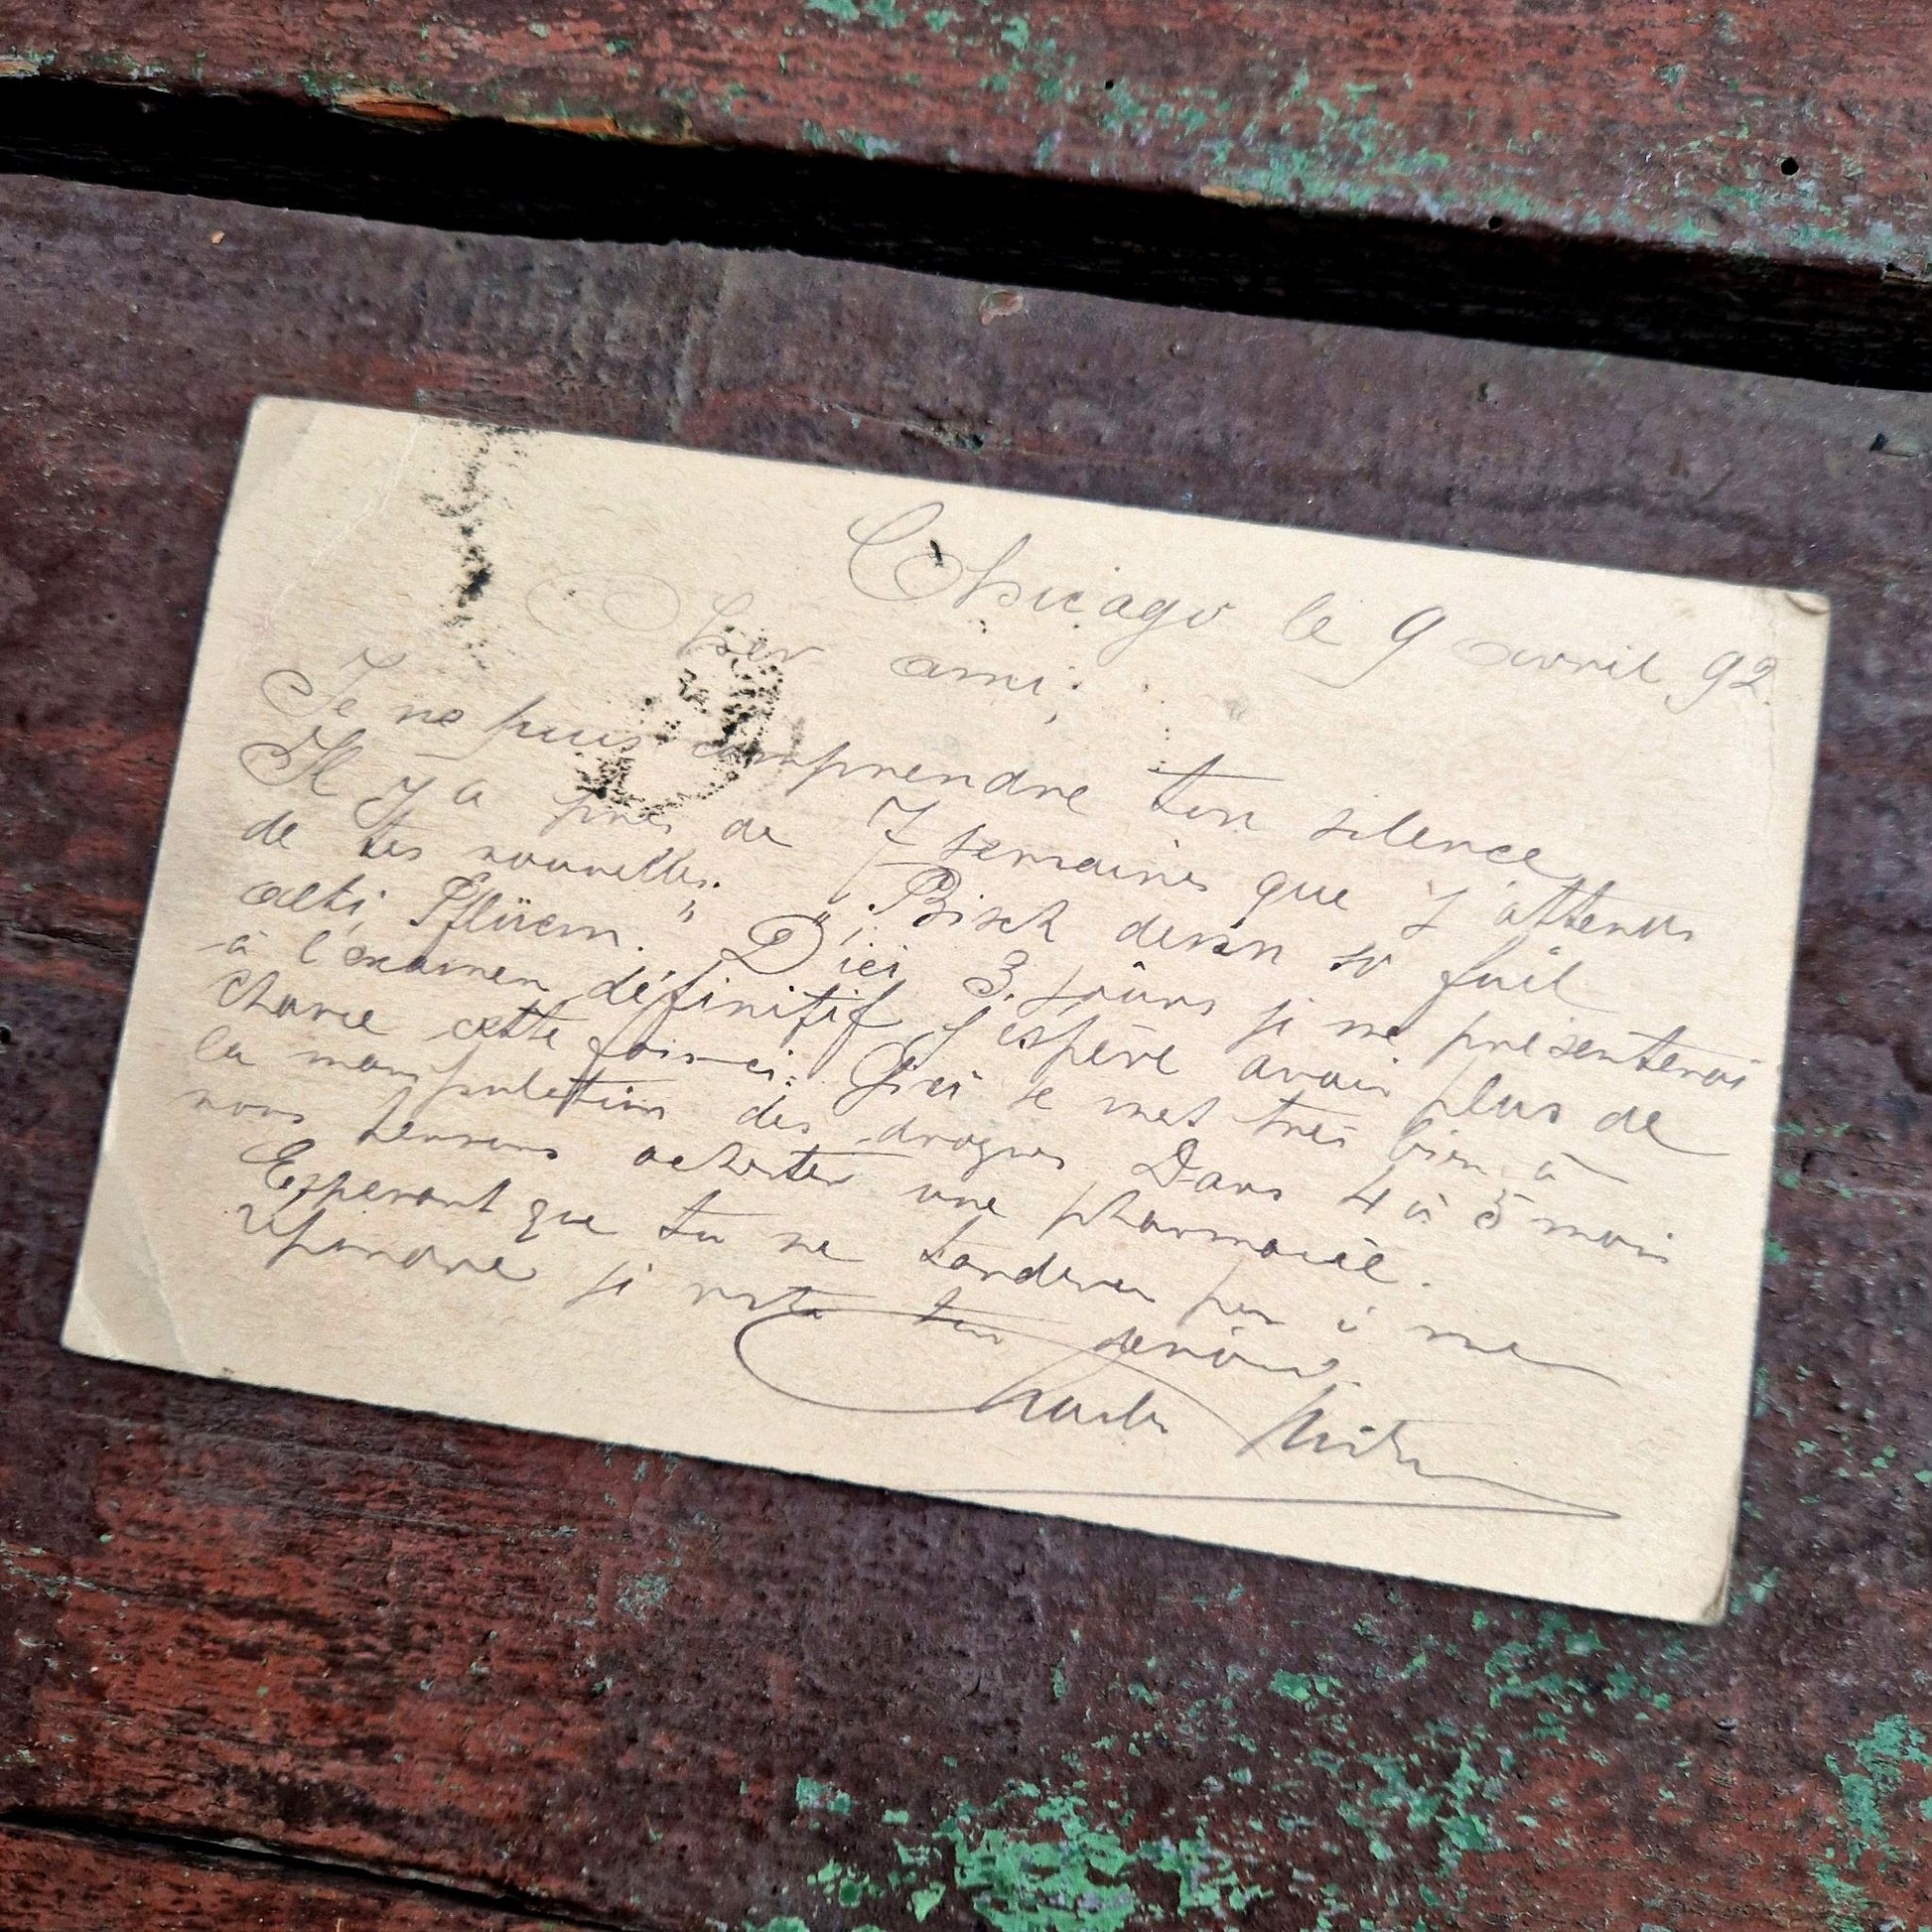 Chicago le 9 avril 92
Cher ami;
Je ne puis comprendre ton silence
Il y a près de 7 semaines que j'attends
de tes nouvelles. „Bisch denn so fuil
alti Pflüem." D'ici 3 jours je me présenterai
à l'examen définitif j'espère avoir plus de
chance cette fois-ci. se met très bien à
la manipulation des drogues Dans 4 à 5 mois
nous pensons acheter une pharmacie.
Esperant que tu ne tarderas pas à me
repondre je reste ton dévoué
Charles